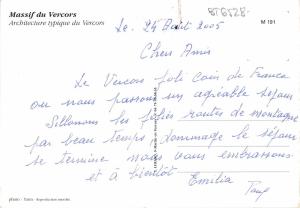 Massif du Vercors
Architecture typique du Vercors
M 191
Le. 24 Août 2005
Chers Amis
Le Vercors joli coin de France
ou nous passons un agréable séjour
Sillonons les jolies routes de montagne
par beau temps, dommage le séjour
se termine nous vous embrassons
et à bientôt Emilia